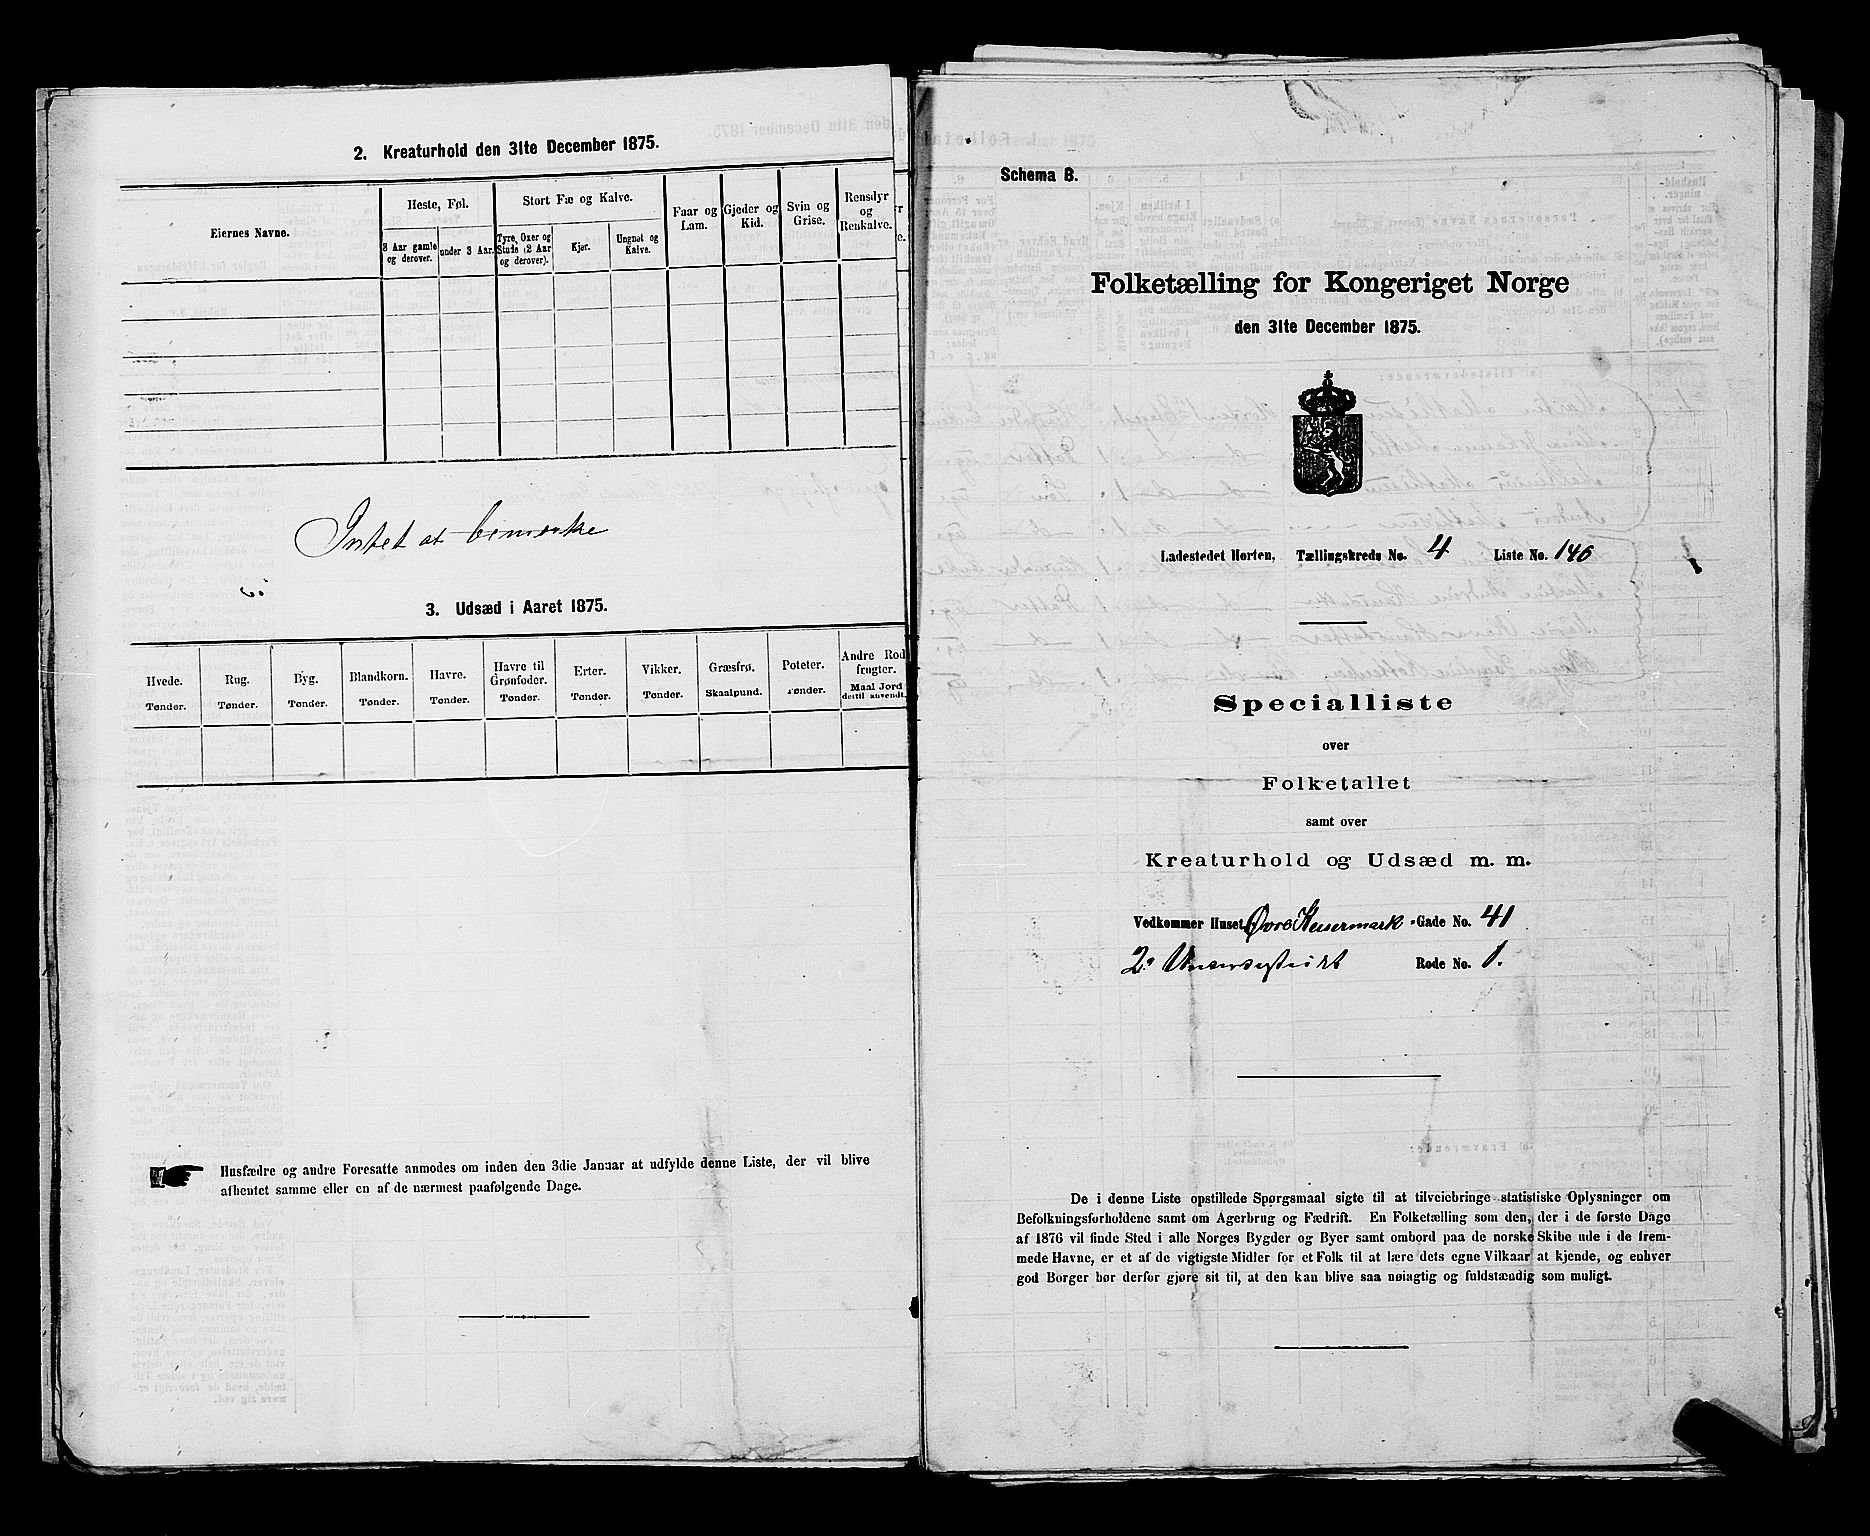 2. Kreaturhold den 31te December 1875.
Eiernes Navne.
Heste, Føl.
3 Aar gamle og derover.
under 3 Aar.
Stort Fæ og Kalve.
Tyre, Oxer og Stude (2 Aar og derover).
Kjør.
Ungnøt og Kalve.
Faar og Lam.
Gjeder og Kid.
Svin og Grise.
Rensdyr og Renkalve.
Intet at bemærke
3. Udsæd i Aaret 1875.
Hvede. Tønder.
Rug. Tønder.
Byg. Tønder.
Blandkorn. Tønder.
Havre. Tønder.
Havre til Grønfoder. Tønder.
Erter. Tønder.
Vikker. Tønder.
Græsfrø. Skaalpund.
Poteter. Tønder.
Andre Rodfrugter. Maal Jord dertil anvendt.
Husfædre og andre Foresatte anmodes om inden den 3die Januar at udfylde denne Liste, der vil blive
afhentet samme eller en af de nærmest paafølgende Dage.
Schema B.
Folketælling for Kongeriget Norge
den 31te December 1875.
Ladestedet Horten, Tællingskreds No. 4 Liste No. 146
Specialliste
over
Folketallet
samt over
Kreaturhold og Udsæd m. m.
Vedkommer Huset Øvre Keisermark-Gade No. 41
2. Rode No. 1.
De i denne Liste opstillede Spørgsmaal sigte til at tilveiebringe statistiske Oplysninger om
Befolkningsforholdene samt om Agerbrug og Fædrift. En Folketælling som den, der i de første Dage
af 1876 vil finde Sted i alle Norges Bygder og Byer samt ombord paa de norske Skibe ude i de frem-
mede Havne, er et af de vigtigste Midler for et Folk til at lære dets egne Vilkaar at kjende, og enhver
god Borger bør derfor gjøre sit til, at den kan blive saa nøiagtig og fuldstændig som muligt.